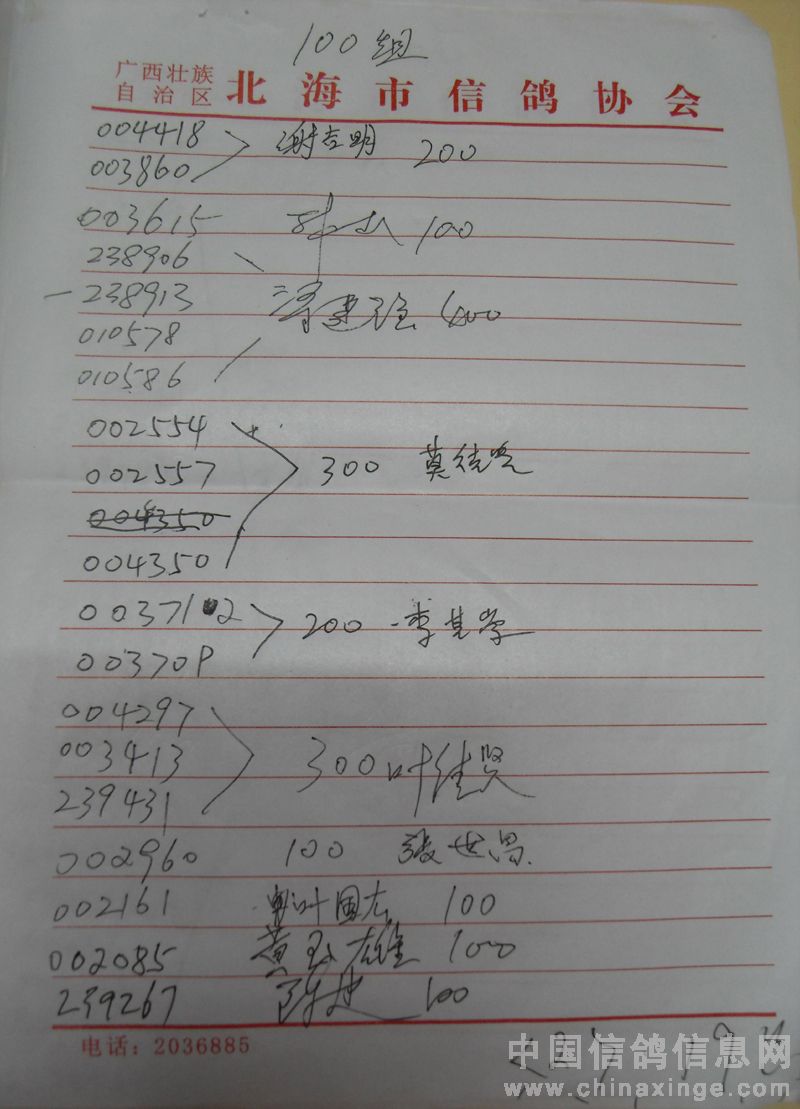 100组
广西壮族
自治区 北海市信鸽协会
004418
谢吉明 200
003860
003615 100
238906
238913 400
010578
010586
002554
002557 300 莫
004350
004350
003712 200 李其学
003709
004297
003413 300 叶佳贤
239431
002960 100 张世昌
002161 叶国友 100
002085 黄玉雄 100
239267 陈 100
电话：2036885
中国信鸽信息网
www.chinaxinge.com